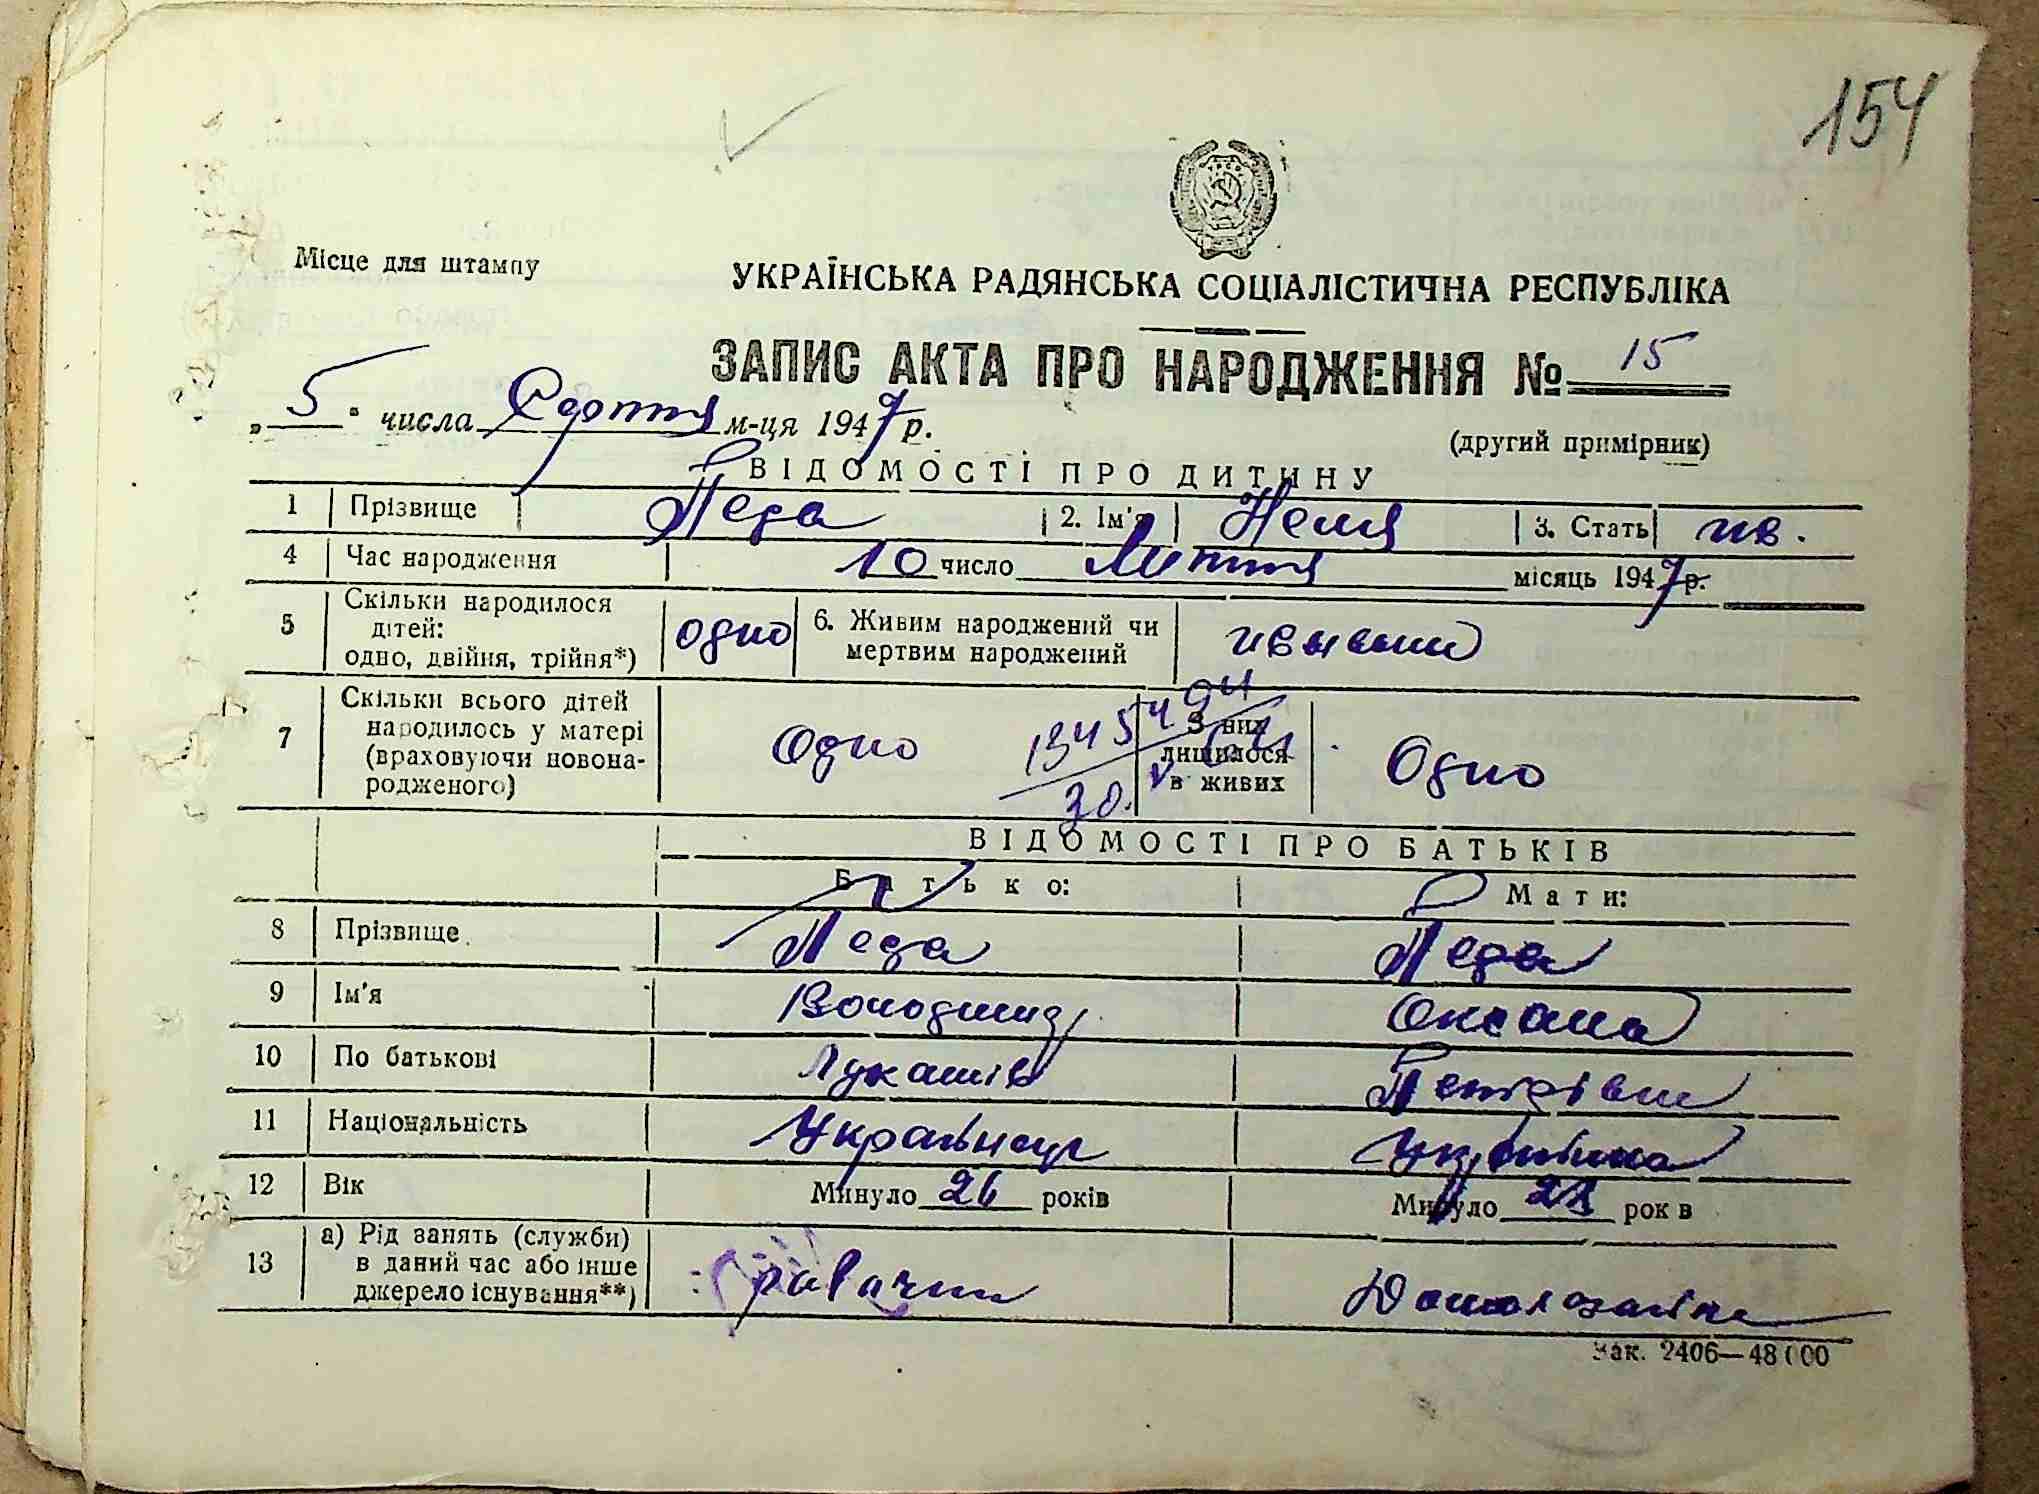 154
Місце для штампу
УКРАЇНСЬКА РАДЯНСЬКА СОЦІАЛІСТИЧНА РЕСПУБЛІКА
ЗАПИС АКТА ПРО НАРОДЖЕННЯ № 15
„5" числа Серпня м-ця 1947 р.
(другий примірник)
ВІДОМОСТІ ПРО ДИТИНУ
1 Прізвище Педа 2. Ім'я Неля 3. Стать жв.
4 Час народження 10 число Липня місяць 1947 р.
5 Скільки народилося дітей: одно, двійня, трійня*) одно 6. Живим народжений чи мертвим народжений живим
7 Скільки всього дітей народилось у матері (враховуючи новона-родженого) Одно З них лишилося в живих Одно
ВІДОМОСТІ ПРО БАТЬКІВ
Батько: Мати:
8 Прізвище Педа Педа
9 Ім'я Володимир Оксана
10 По батькові Лукашів Петрівна
11 Національність Українец Українка
12 Вік Минуло 26 років Минуло 21 рок в
13 а) Рід занять (служби) в даний час або інше джерело існування**)
Зак. 2406—48 000